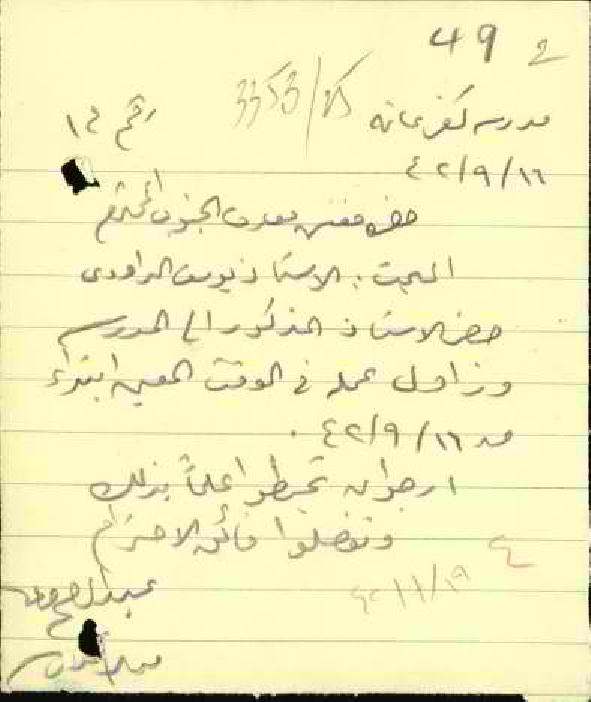 49
3353/25
مدرسة كفرعانه رقم ١٢
٤٢/٩/١٦
حضرة مفتش معارف الجنوب المحترم
المبحث: الاستاذ يوسف الداودي
حضر الاستاذ المذكور الى المدرسة
وزاول عمله في الوقت المعين ابتداء
من ٤٢/٩/١٦.
ارجو ان تحيطوا علماً بذلك
وتفضلوا فائق الاحترام